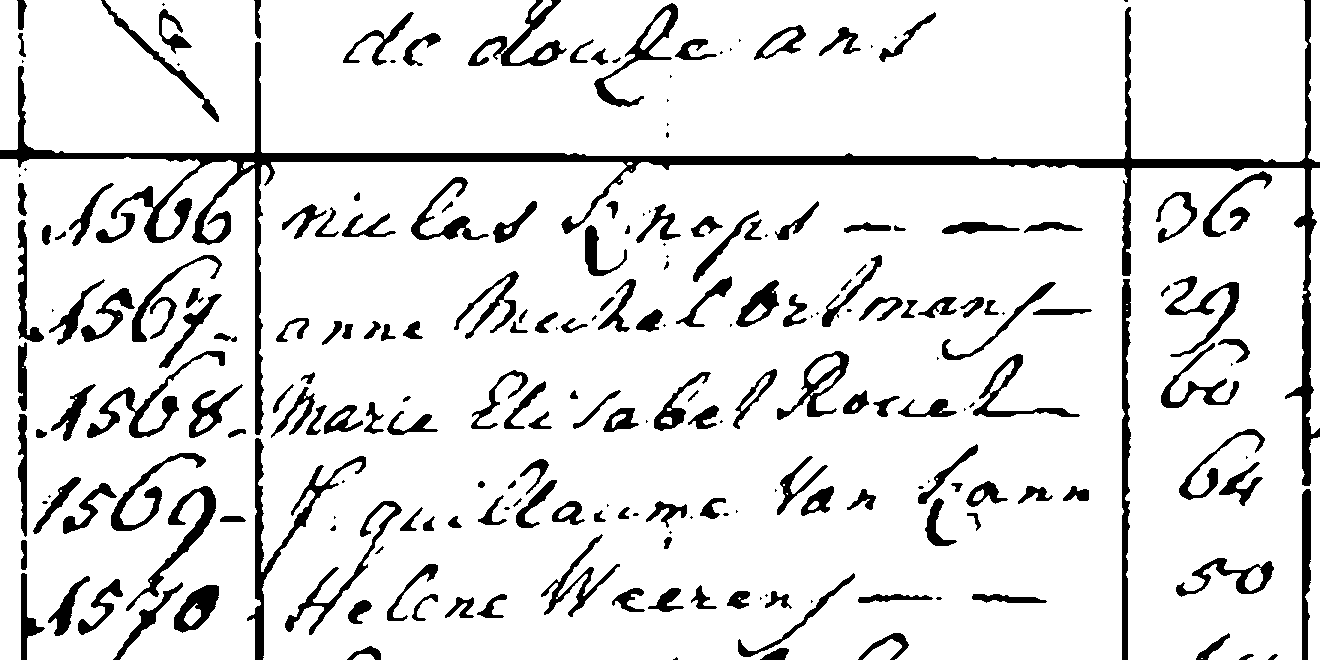 de douze ans
1566 nicolas Knops — — 36
1567 anne Mechel ortmans — 29
1568 Marie Elisabet Rouet — 60
1569 J. guillaume Van Lann 64
1570 Helene Weerens — — 50